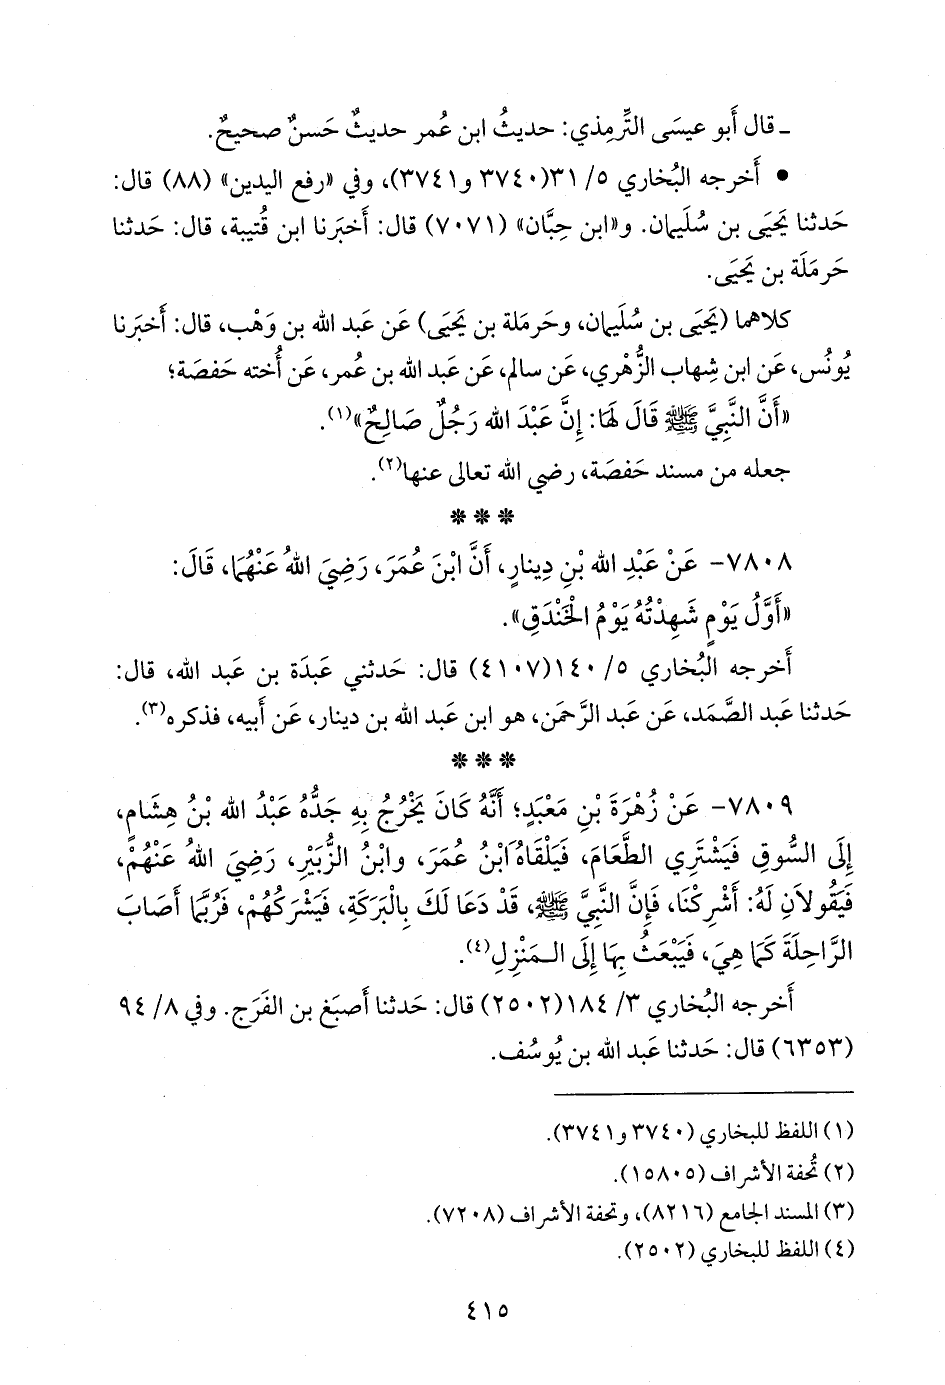 ـ قال أَبو عيسَى التِّرمِذي: حديثُ ابن عُمر حديثٌ حَسنٌ صحيحٌ.
• أَخرجه البُخاري ٥/ ٣١(٣٧٤٠ و٣٧٤١)، وفي «رفع اليدين» (٨٨) قال:
حَدثنا يَحيَى بن سُليمان. و«ابن حِبَّان» (٧٠٧١) قال: أَخبَرنا ابن قُتيبة، قال: حَدثنا
حَرمَلَة بن يَحيَى.
كلاهما (يَحيَى بن سُليمان، وحَرمَلة بن يَحيَى) عَن عَبد الله بن وَهْب، قال: أَخبَرنا
يُونُس، عَن ابن شِهاب الزُّهْري، عَن سالم، عَن عَبد الله بن عُمر، عَن أُخته حَفصَة؛
«أَنَّ النَّبِيَّ ﷺ قَالَ لَهَا: إِنَّ عَبْدَ الله رَجُلٌ صَالِحٌ»(١).
جعله من مسند حَفصَة، رضي الله تعالى عنها(٢).
* * *
٧٨٠٨- عَنْ عَبْدِ الله بْنِ دِينارٍ، أَنَّ ابْنَ عُمَرَ، رَضِيَ اللهُ عَنْهُمَا، قَالَ:
«أَوَّلُ يَوْمٍ شَهِدْتُهُ يَوْمُ الْخَنْدَقِ».
أَخرجه البُخاري ٥/ ١٤٠(٤١٠٧) قال: حَدثني عَبدَة بن عَبد الله، قال:
حَدثنا عَبد الصَّمَد، عَن عَبد الرَّحمَن، هو ابن عَبد الله بن دينار، عَن أَبيه، فذكره(٣).
* * *
٧٨٠٩- عَنْ زُهْرَةَ بْنِ مَعْبَدٍ؛ أَنَّهُ كَانَ يَخْرُجُ بِهِ جَدُّهُ عَبْدُ الله بْنُ هِشَامٍ،
إِلَى السُّوقِ فَيَشْتَرِي الطَّعَامَ، فَيَلْقَاهُ ابْنُ عُمَرَ، وابْنُ الزُّبَيْرِ، رَضِيَ اللهُ عَنْهُمْ،
فَيَقُولاَنِ لَهُ: أَشْرِكْنَا، فَإِنَّ النَّبِيَّ ﷺ، قَدْ دَعَا لَكَ بِالْبَرَكَةِ، فَيَشْرَكُهُمْ، فَرُبَّمَا أَصَابَ
الرَّاحِلَةَ كَمَا هِيَ، فَيَبْعَثُ بِهَا إِلَى الـمَنْزِلِ(٤).
أَخرجه البُخاري ٣/ ١٨٤(٢٥٠٢) قال: حَدثنا أَصبَغ بن الفَرَج. وفي ٨/ ٩٤
(٦٣٥٣) قال: حَدثنا عَبد الله بن يُوسُف.
(١) اللفظ للبخاري (٣٧٤٠ و٣٧٤١).
(٢) تُحفة الأَشراف (١٥٨٠٥).
(٣) المسند الجامع (٨٢١٦)، وتحفة الأَشراف (٧٢٠٨).
(٤) اللفظ للبخاري (٢٥٠٢).
٤١٥